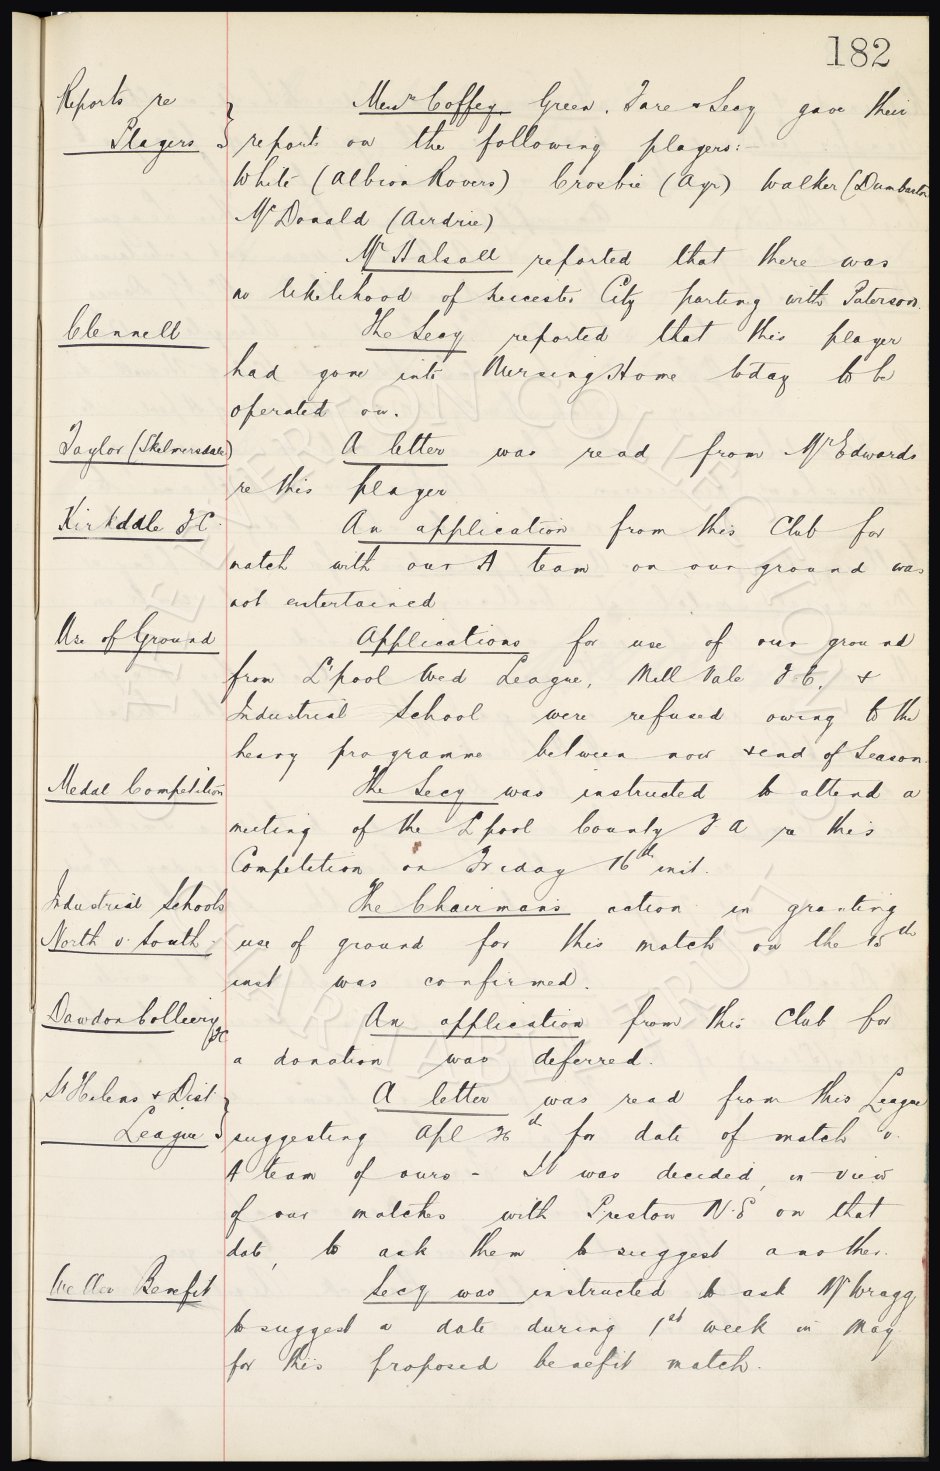 182
Reports re
Players
Messrs Coffey, Green, Tare & Secy gave their
reports on the following players:-
White (Albion Rovers) Crosbie (Ayr) Walker (Dumbarton
McDonald (Airdrie)
Mr Halsall reported that there was
no likelihood of Leicester City parting with Paterson.
Clennell
The Secy reported that this player
had gone into Nursing Home today to be
operated on.
Taylor (Skelmersdale)
A letter was read from Mr Edwards
re this player
Kirkdale F.C.
An application from this Club for
match with our A team on our ground was
not entertained
Use of Ground
Applications for use of our ground
from L'pool Wed League, Mill Vale F.C. &
Industrial School were refused owing to the
heavy programme between now & end of Season.
Medal Competition
The Secy was instructed to attend a
meeting of the L'pool County F A re this
Competition on Friday 16th inst.
Industrial Schools
North v. South
The Chairman's action in granting
use of ground for this match on the 15th
inst was confirmed.
Dawdon Colliery
FC
An application from this Club for
a donation was deferred.
St Helens & Dist
League
A letter was read from this League
suggesting Apl 26th for date of match v.
A team of ours - It was decided, in view
of our matches with Preston N.E on that
date, to ask them to suggest another.
Weller Benefit
Secy was instructed to ask Mr Wragg
to suggest a date during 1st week in May
for this proposed benefit match.